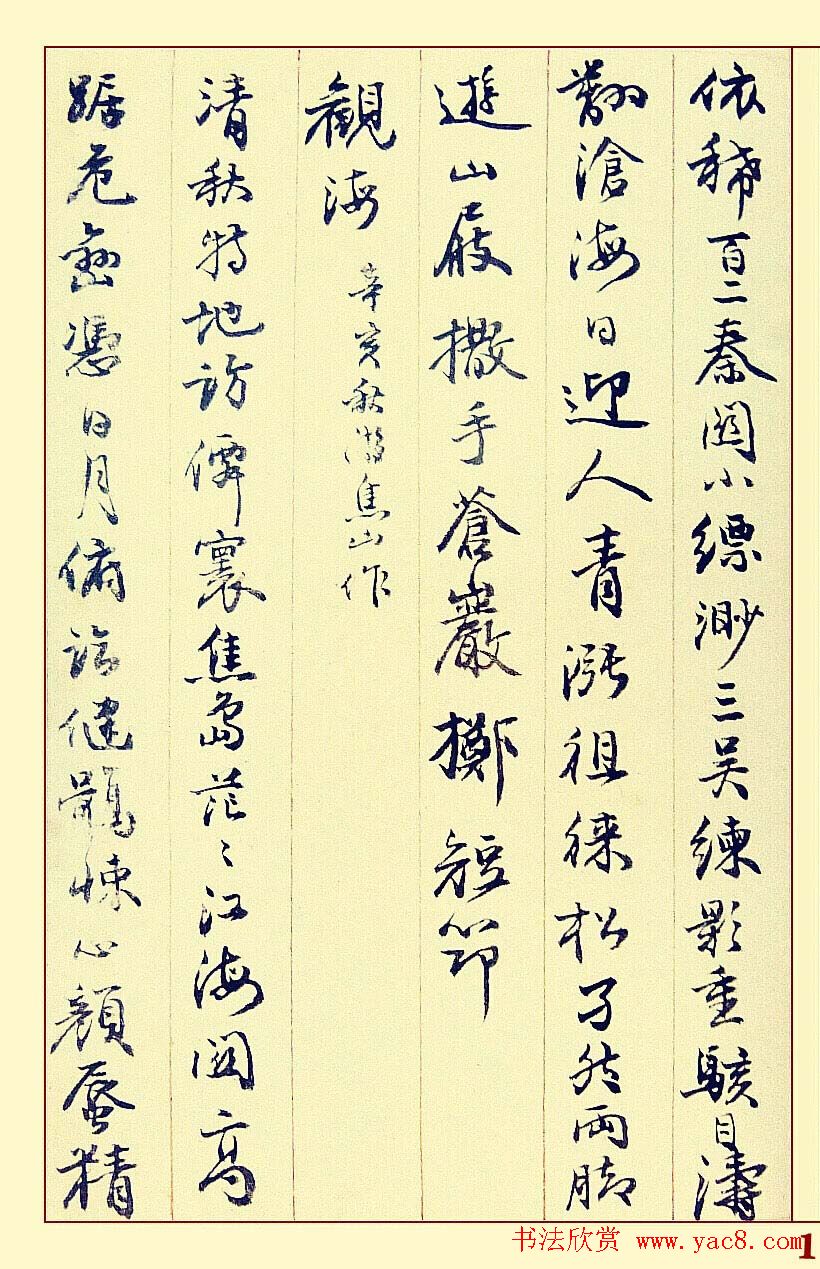 依稀百二秦關小縹渺三吴練影重駭目濤
翻滄海日迎人青漲徂徠松孑然兩脚
遊山屐撒手蒼巖擲短笻
観海 辛亥秋游焦山作
清秋特地訪僊寰焦島茫〻江海闊高
踞危巒憑日月俯臨健鶻悚心顔蜃精
书法欣赏 www.yac8.com
1